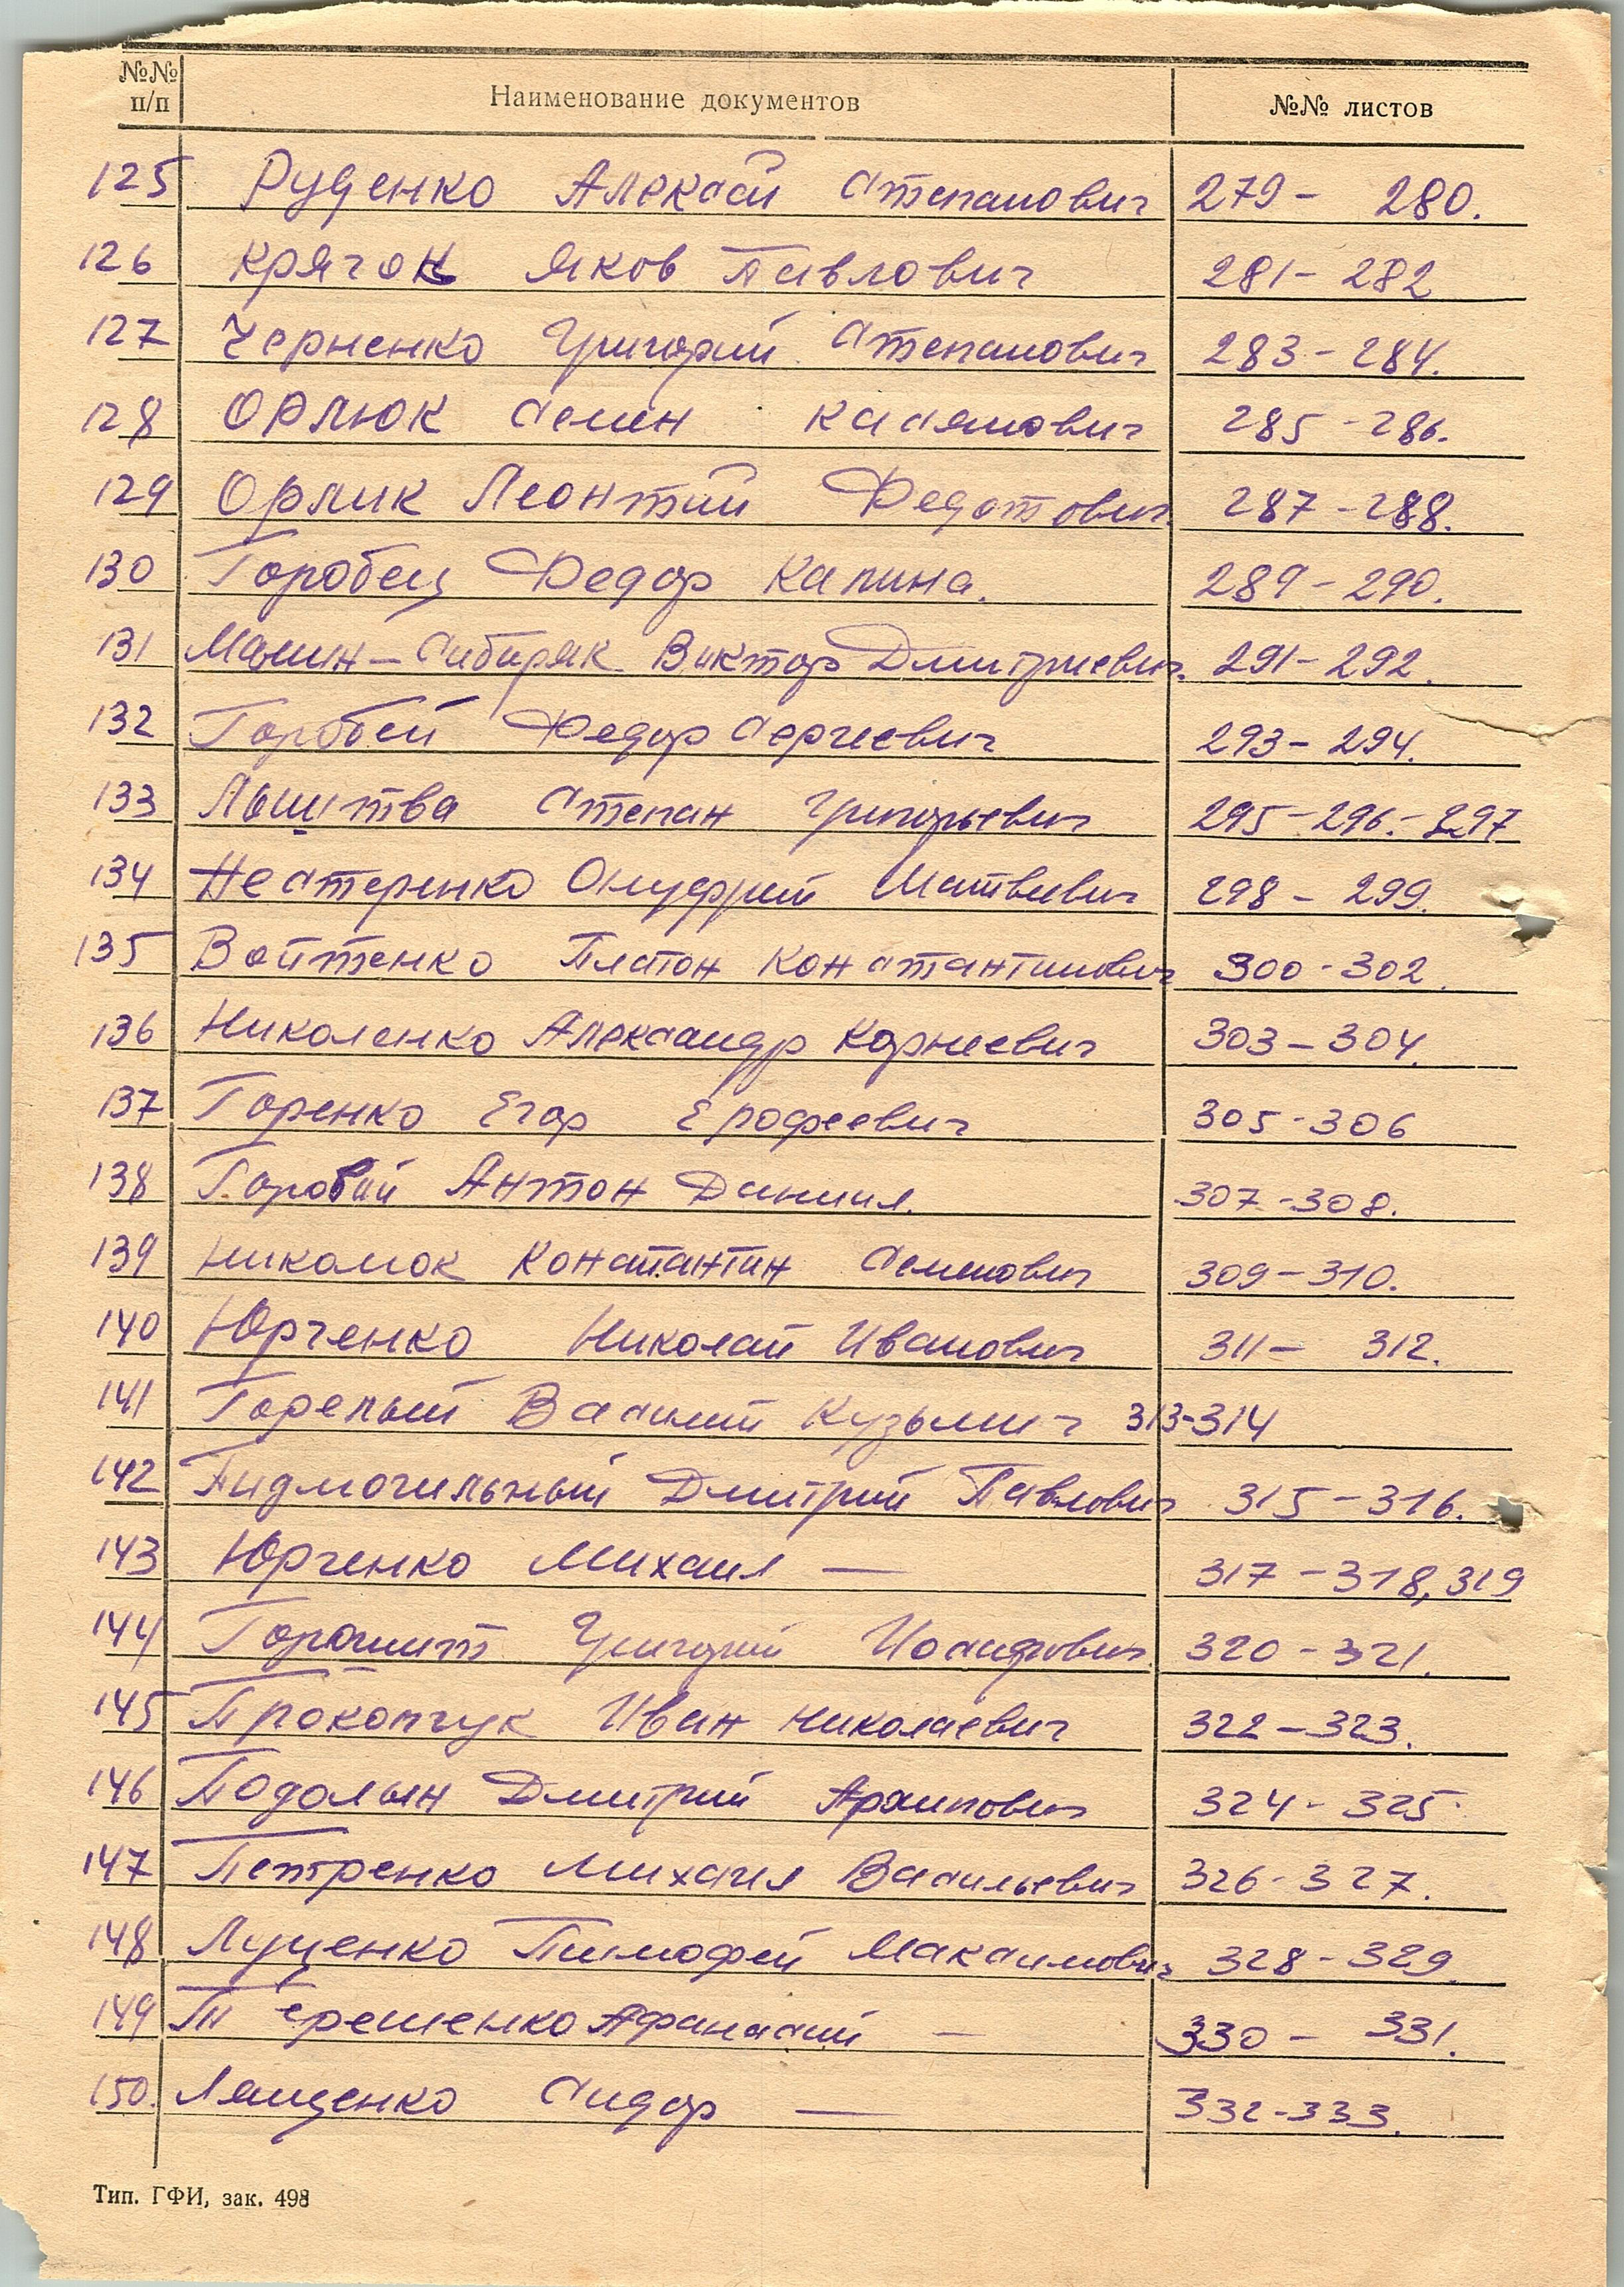 №№ п/п Наименование документов №№ листов
125 Руденко Алексей Степанович 279 - 280.
126 Крячок Яков Павлович 281 - 282
127 Черненко Григорий Степанович 283 - 284.
128 Орлюк Семен Касянович 285 - 286.
129 Орлик Леонтий Федотович 287 - 288.
130 Горобец Федор Калина. 289 - 290.
131 Мамин-Сибиряк Виктор Дмитриевич. 291 - 292.
132 Горобей Федор Сергеевич 293 - 294.
133 Лыштва Степан Григорьевич 295 - 296. - 297
134 Нестеренко Онуфрий Матвеевич 298 - 299.
135 Войтенко Платон Константинович 300 - 302.
136 Николенко Александр Корнеевич 303 - 304.
137 Горенко Егор Ерофеевич 305 - 306
138 Горовий Антон Даниил. 307 - 308.
139 Николюк Константин Семенович 309 - 310.
140 Юрченко Николай Иванович 311 - 312.
141 Горелый Василий Кузьмич 313-314
142 Пидмогильный Дмитрий Павлович 315 - 316.
143 Юрченко Михаил — 317 - 318, 319
144 Григорий Иосифович 320 - 321.
145 Прокопчук Иван Николаевич 322 - 323.
146 Подолын Дмитрий Архипович 324 - 325.
147 Петренко Михаил Васильевич 326 - 327.
148 Луценко Тимофей Максимович 328 - 329.
149 Терешенко Афанасий — 330 - 331.
150. Лященко Сидор — 332-333.
Тип. ГФИ, зак. 498